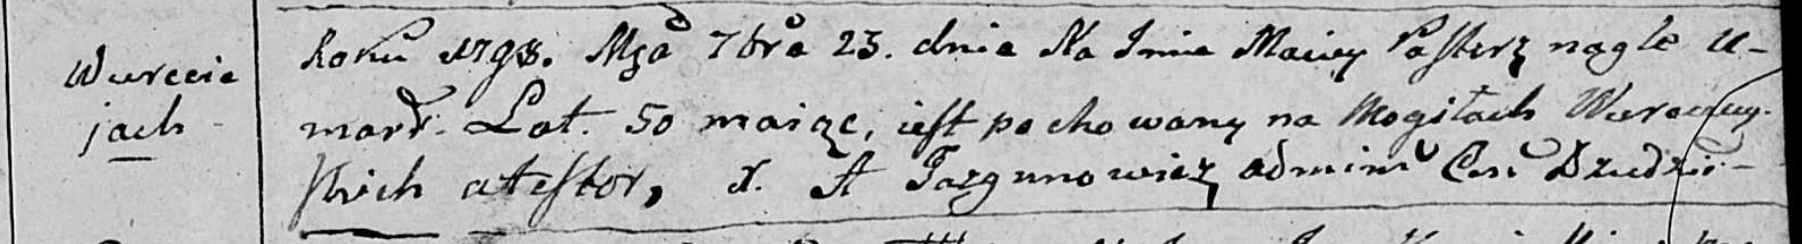 Wurecie
jach
Roku 1798. Mca 7bra 23. dnia Na Imie Maciey Pasterz nagle u-
marł. Lat. 50 maiąc, iest pochowany na Mogiłach
skich atestor, X. A Jazgunowicz admini